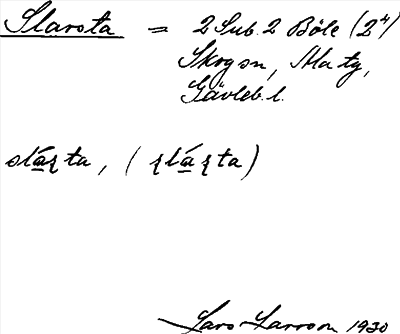 Slarsta = 2 Sub. 2 Böle (2⁴)
Skog sn, Ala tg,
Gävleb. l.
slá̱ʂta, (ʂlá̱ʂta)
Lars Larsson 1930